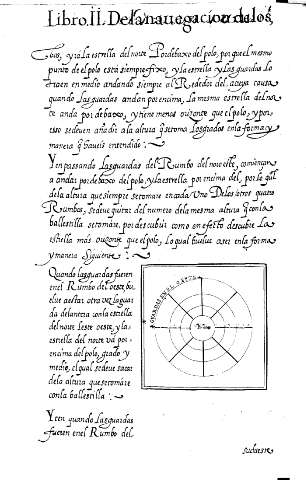 Libro.II. De la nauegacion de los,
y la estrella del norte Por debaxo del polo, por que el mesmo
punto de el polo esta siempre fixo, y la estrella y las guardas lo
traen en medio andando siempre al Rededor del, a cuya causa
quando las guardas andan por encima, La mesma estrella del nor
te anda por debaxo, y tiene menos que el polo, y por
esso se deuen añadir a la altura q̃ se toma Las grados en la forma y
manera q̃ haueis entendido:
Y en passando Las guardas del Rumbo del norueste, comiençan
a andar por debaxo del polo, y la estrella por encima del, por lo qual
de la altura que siempre se tomare en cada Vno De los otros quatro
Rumbos, se deue quitar del numero de la mesma altura q̃ con la
ballestilla se tomare, por descubrir como en efecto descubre La
estrella mas que el polo, Lo qual en la forma
y manera Siguiente:
Quando las guardas fueren
en el Rumbo del oeste,
que aesta otra vez la guar
da delantera con la estrella
del norte Leste oeste, y la
estrella del norte va por
encima del polo, grado y
medio, el qual se deue sacar
de la altura que se tomare
con la ballestilla:
Y ten quando Las guardas
fueren en el Rumbo del
sudueste